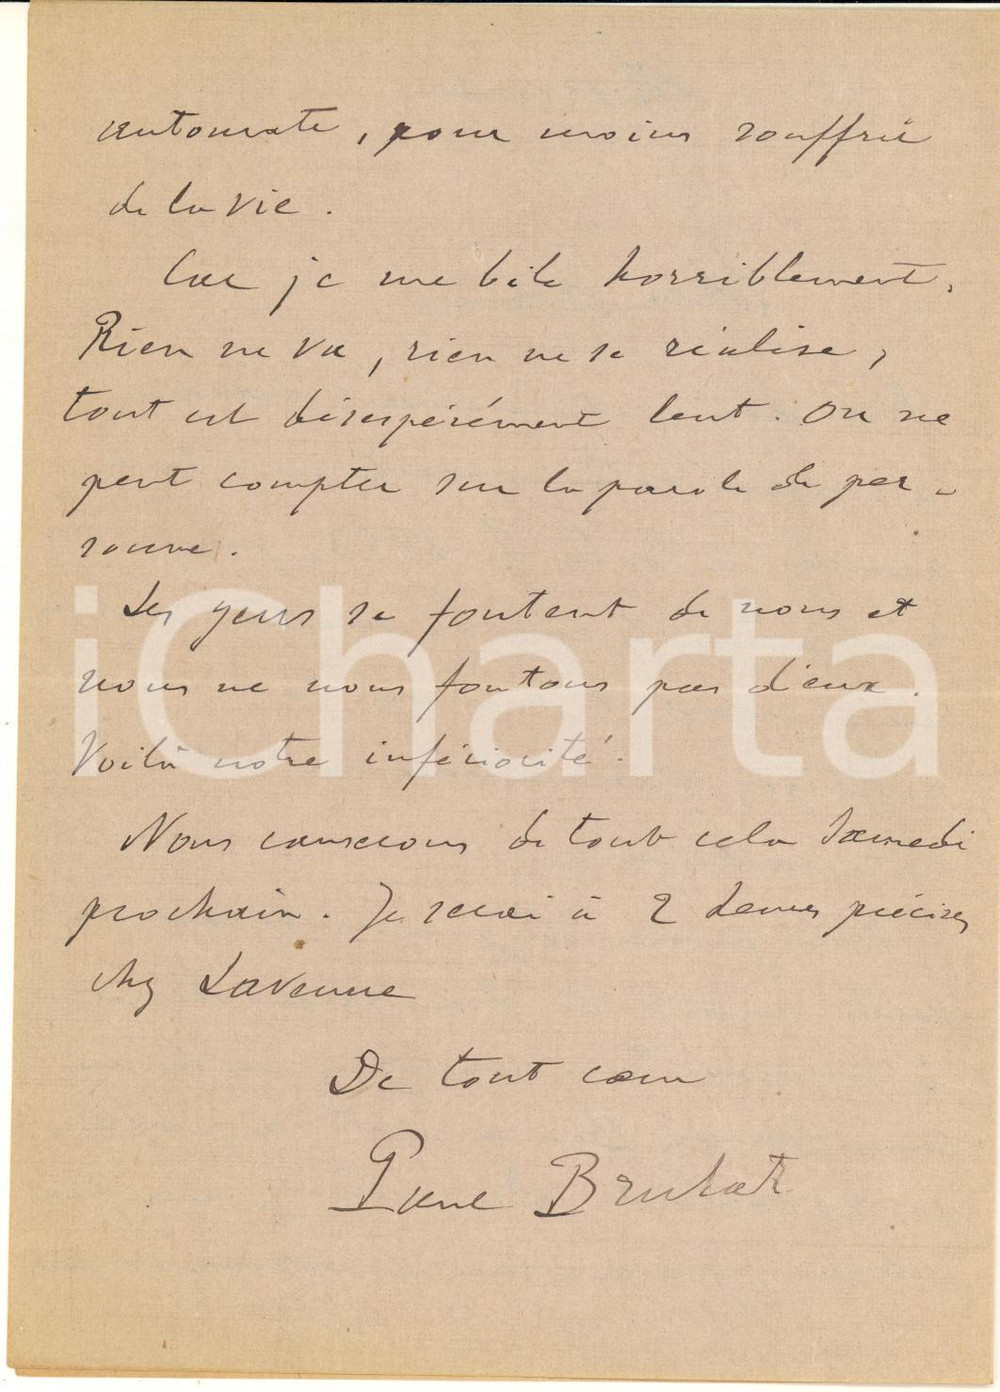 automate, pour moins souffrir
de la vie.
Car je me bile horriblement.
Rien ne va, rien ne se réalise,
tout est désespérément lent. On ne
peut compter sur la parole de per-
sonne.
Les gens se foutent de nous et
nous ne nous foutons pas d'eux.
Voilà notre infériorité.
Nous causerons de tout cela Samedi
prochain. Je serai à 2 heures précises
chez Lavenne
De tout cœur
Paul Bruhat
iCharta